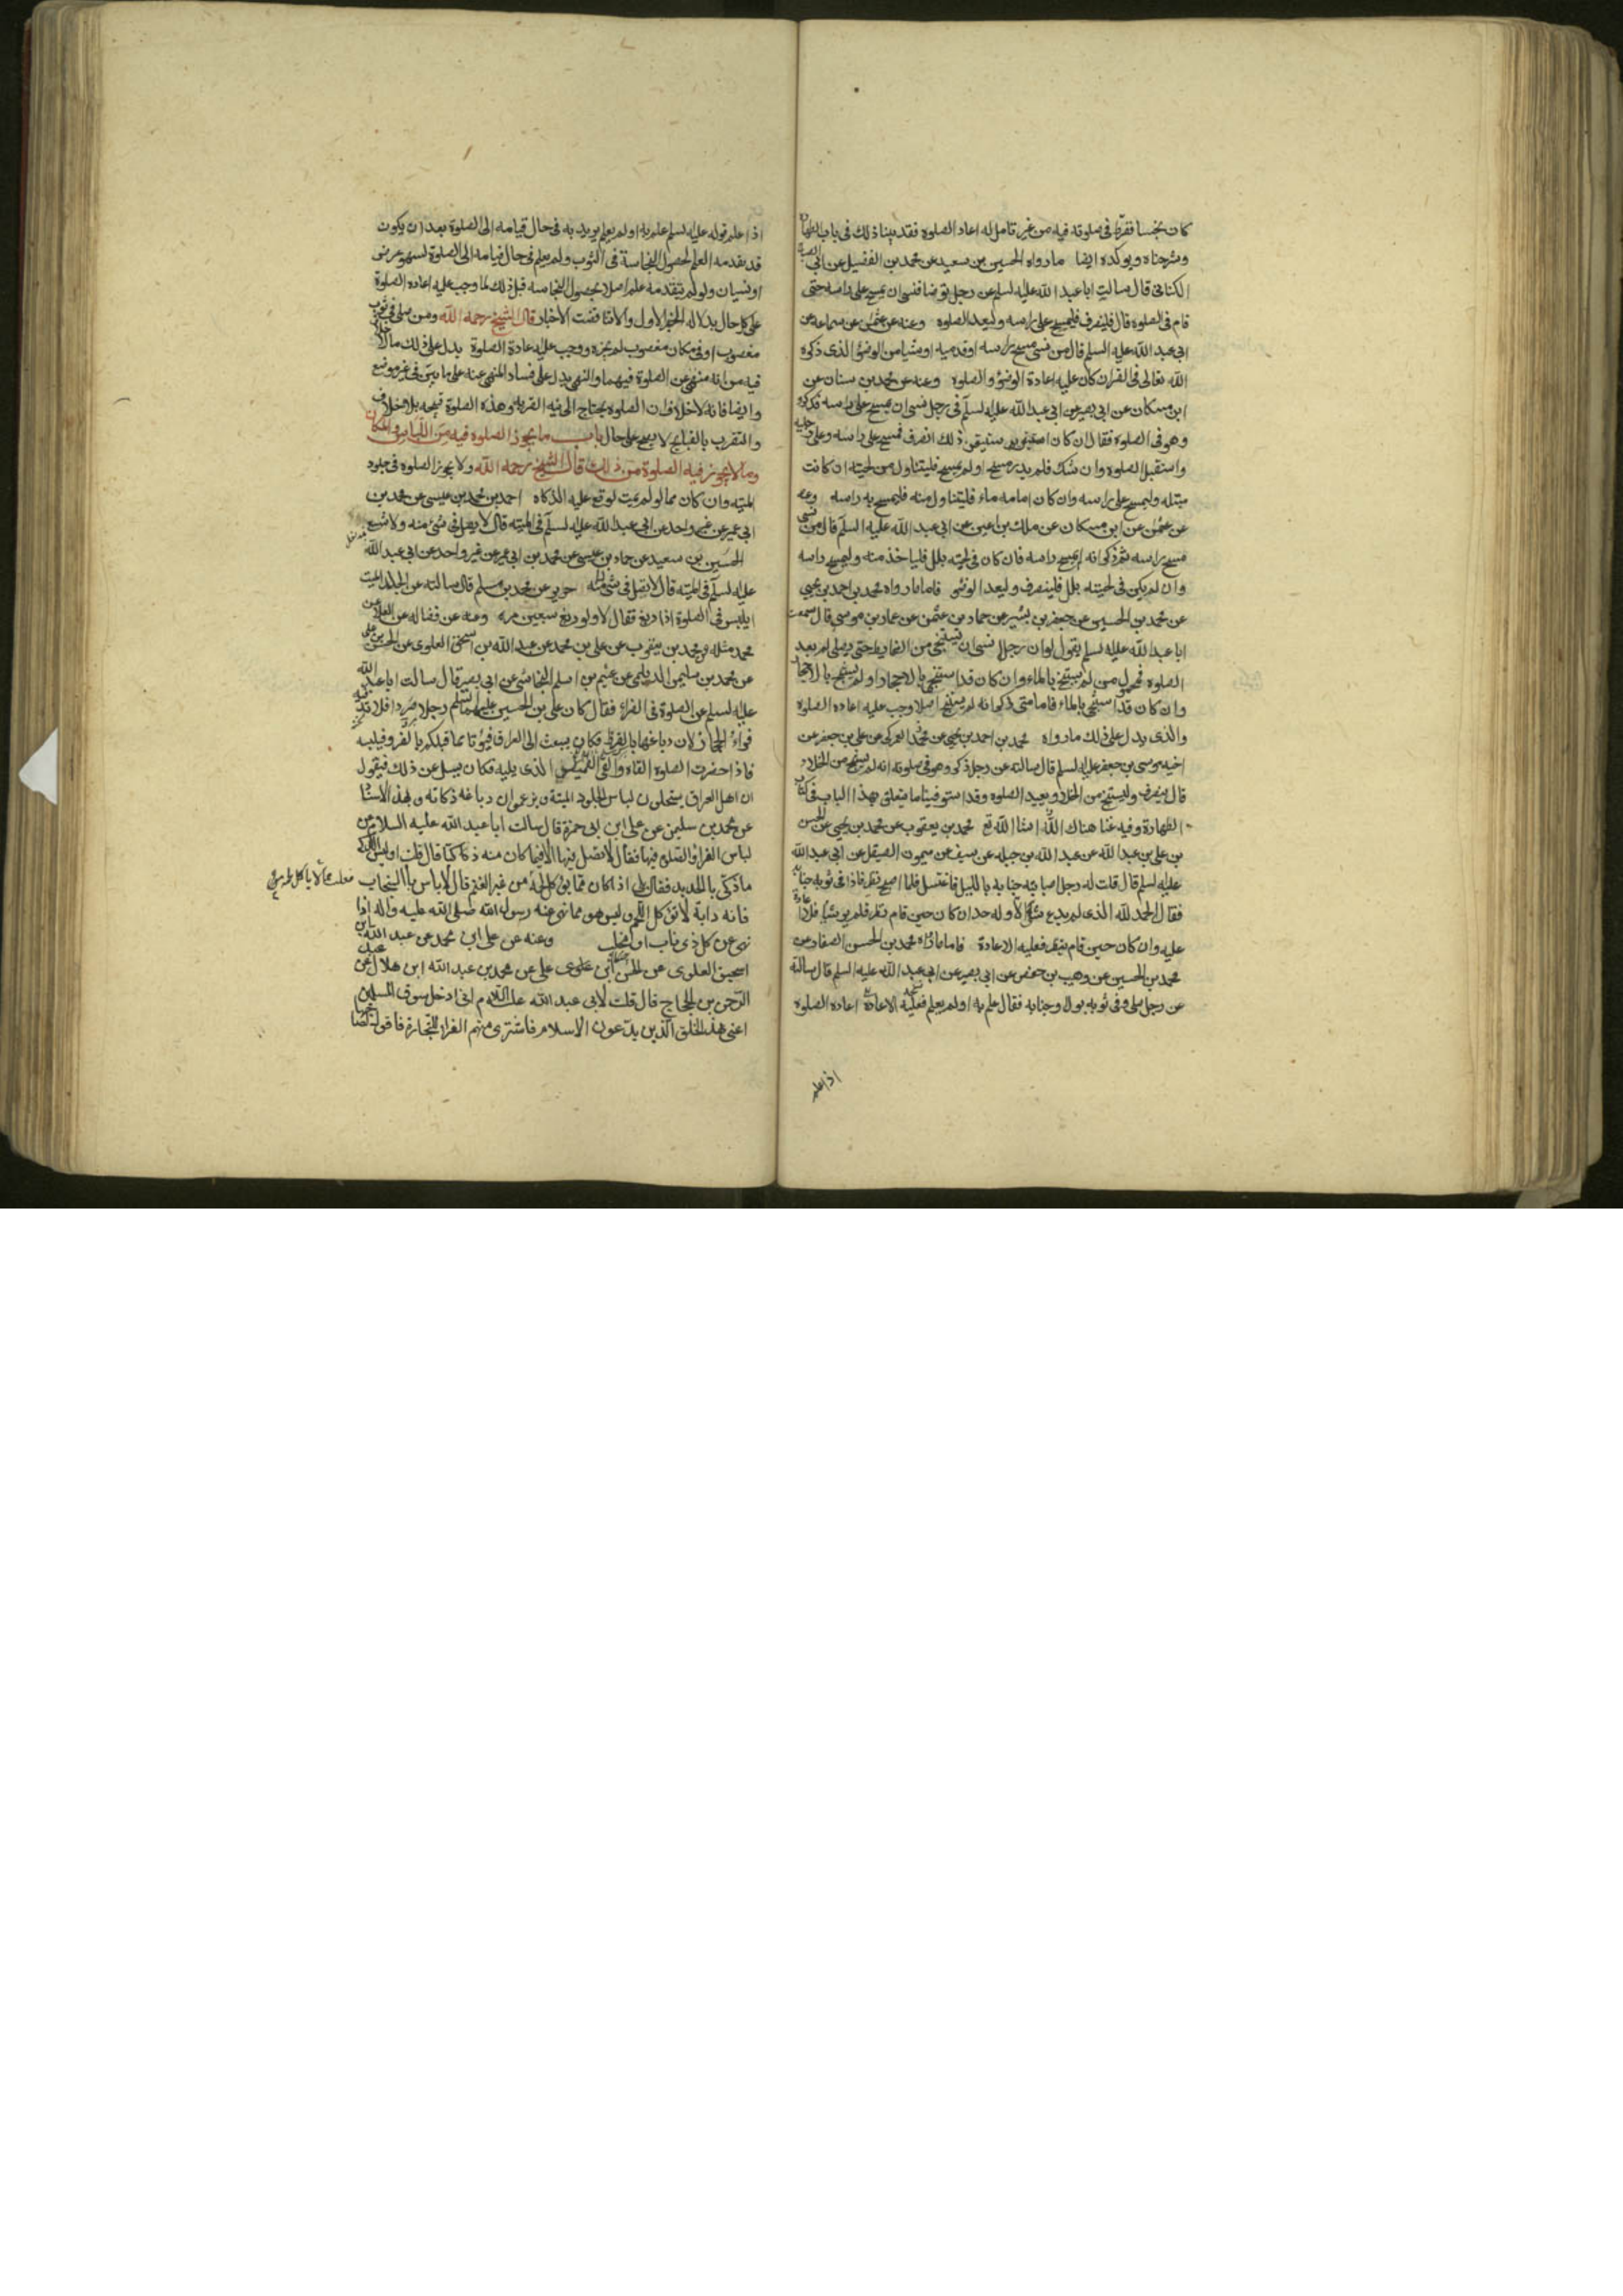 كان نجسا ففرط فى صلوته فيه من غير تامل له اعاد الصلوة فقد بينا ذلك فى باب الطهارة
وشرحناه ويوكده ايضا ما رواه الحسين بن سعيد عن محمد بن الفضيل عن ابى الصباح
الكنانى قال سالت ابا عبد الله عليه لسلم عن رجل توضا فنسى ان يمسح على راسه حتى
قام فى الصلوة قال فلينصرف فليمسح على راسه وليعد الصلوة وعنه عن عثمن عن سماعة عن
ابى عبد الله عليه السلم قال من نسى مسح راسه او قدميه او شيئا من الوضوء الذى ذكره
الله تعالى فى القران كان عليه اعادة الوضوء والصلوة وعنه عن محمد بن سنان عن
ابن مسكان عن ابى بصير عن ابى عبد الله عليه لسلم فى رجل نسى ان يمسح على راسه فذكره
وهو فى الصلوة فقال ان كان استيقن ذلك انصرف فمسح على راسه وعلى رجليه
واستقبل الصلوة وان شك فلم يدر مسح او لم يمسح فليتناول من لحيته ان كانت
مبتله وليمسح على راسه وان كان امامه ماء فليتناول منه فليمسح به راسه وعنه
عن عثمن عن ابن مسكان عن ملك بن اعين عن ابى عبد الله عليه السلم قال من نسى
مسح راسه ثم ذكر انه لم يمسح راسه فان كان فى لحيته بلل فلياخذ منه وليمسح راسه
وان لم يكن فى لحيته بلل فلينصرف وليعد الوضو فاما ما رواه محمد بن احمد بن يحيى
عن محمد بن الحسين عن جعفر بن بشير عن حماد بن عثمن عن عمار بن موسى قال سمعت
ابا عبد الله عليه لسلم يقول لو ان رجلا نسى ان يستنجى من الغايط حتى يصلى لم يعد
الصلوة فمحمول من لم يستنج بالماء وان كان قد استنجى بالاحجار او لم يستنج بالاحجار
وان كان قد استنجى بالماء فاما متى ذكر انه لم يستنج اصلا وجب عليه اعاده الصلوة
والذى يدل على ذلك ما رواه محمد بن احمد بن يحيى عن محمد العمركى عن على بن جعفر عن
اخيه موسى بن جعفر عليه لسلم قال سالته عن رجل ذكر وهو فى صلوته انه لم يستنج من الخلاء
قال ينصرف وليستنج من الخلاء ويعيد الصلوة وقد استوفينا ما يتعلق بهذا الباب فى كتاب
الطهارة وفيه غنا هناك انشا الله تع محمد بن يعقوب عن محمد بن يحيى عن الحسن
بن على بن عبد الله عن عبد الله بن جبله عن سيف عن ميمون الصيقل عن ابى عبد الله
عليه لسلم قال قلت له رجل اصابته جنابه بالليل فاغتسل فلما اصبح نظر فاذا فى ثوبه جنابة
فقال الحمد لله الذى لم يدع شيئا الا وله حد ان كان حين قام نظر فلم ير شيئا فلا اعادة
عليه وان كان حين قام لم ينظر فعليه الاعادة فاما ما رواه محمد بن الحسن الصفار عن
محمد بن الحسين عن وهيب بن حفص عن ابى بصير عن ابى عبد الله عليه السلم قال سالته
عن رجل صلى وفى ثوبه بول او جنابه فقال علم به او لم يعلم فعليه الاعادة اعاده الصلوة
اذا علم
اذا علم قوله عليه لسلم علم به او لم يعلم يريد به فى حال قيامه الى الصلوة بعد ان يكون
قد تقدمه العلم لحصول النجاسة فى الثوب ولم يعلم فى حال قيامه الى الصلوة لسهو عرض
او نسيان ولو لم يتقدمه علم اصلا بحصول النجاسه قبل ذلك لما وجب عليه اعاده الصلوة
على كل حال بدلاله الخبر الاول والا تناقضت الاخبار قال الشيخ رحمه الله ومن صلى فى ثوب
مغصوب او فى مكان مغصوب لم يجزه ووجب عليه اعادة الصلوة يدل على ذلك ما لا خلاف
فيه من انه منهى عن الصلوة فيهما والنهى يدل على فساد المنهى عنه على ما بين فى غير موضع
وايضا فانه لا خلاف ان الصلوة يحتاج الى نيه القربه وهذه الصلوة قبيحه بلا خلاف
والتقرب بالقبايح لا يصح على حال باب ما يجوز الصلوة فيه من اللباس والمكان
وما لا يجوز فيه الصلوة من ذلك قال الشيخ رحمه الله ولا يجوز الصلوة فى جلود
الميته وان كان مما لو لم يمت لوقع عليه الذكاه احمد بن محمد بن عيسى عن محمد بن
ابى عمير عن غير واحد عن ابى عبد الله عليه لسلم فى الميته قال لا يصل فى شئ منه ولا شسع
الحسين بن سعيد عن حماد بن عيسى عن محمد بن ابى عمير عن غير واحد عن ابى عبد الله
عليه لسلم فى الميته قال لا تصل فى شئ منه حريز عن محمد بن مسلم قال سالته عن الجلد الميت
ايلبس فى الصلوة اذا دبغ فقال لا ولو دبغ سبعين مره وعنه عن فضاله عن العلا عن
محمد مثله محمد بن يعقوب عن على بن محمد عن عبد الله بن اسحق العلوى عن الحسن بن على
عن محمد بن سليمن الديلمى عن عثيم بن اسلم النجاشى عن ابى بصير قال سالت ابا عبد الله
عليه لسلم عن الصلوة فى الفراء فقال كان على بن الحسين عليهما السلم رجلا صردا فلا تدفيه
فراء الحجاز لان دباغها بالقرظ فكان يبعث الى العراق فيؤتا مما قبلكم بالفرو فيلبسه
فاذا حضرت الصلوة القاه والقى القميص الذى يليه فكان يسل عن ذلك فيقول
ان اهل العراق يستحلون لباس الجلود الميتة ويزعمون ان دباغه ذكاته وبهذا الاسناد
عن محمد بن سليمن عن على ابن ابى حمزة قال سالت ابا عبد الله عليه السلام عن
لباس الفراء والصلوة فيها فقال لا تصل فيها الا فيما كان منه ذكيا قال قلت اوليس الذكى
ما ذكى بالحديد فقال بلى اذا كان مما يؤكل لحمه من غير الغنم قال لا باس بالسنجاب
فانه دابة لا تاكل اللحم وليس هو مما نهى عنه رسول الله صلى الله عليه واله اذا
نهى عن كل ذى ناب او مخلب وعنه عن على ابن محمد عن عبد الله بن
اسحق العلوى عن الحسن ابن على عن محمد بن عبد الله ابن هلال عن عبد
الرحمن بن الحجاج قال قلت لابى عبد الله عليه السلام انى ادخل سوق المسلمين
اعنى هذا الخلق الذين يدعون الاسلام فاشترى منهم الفراء للتجارة فاقول لصاحبها